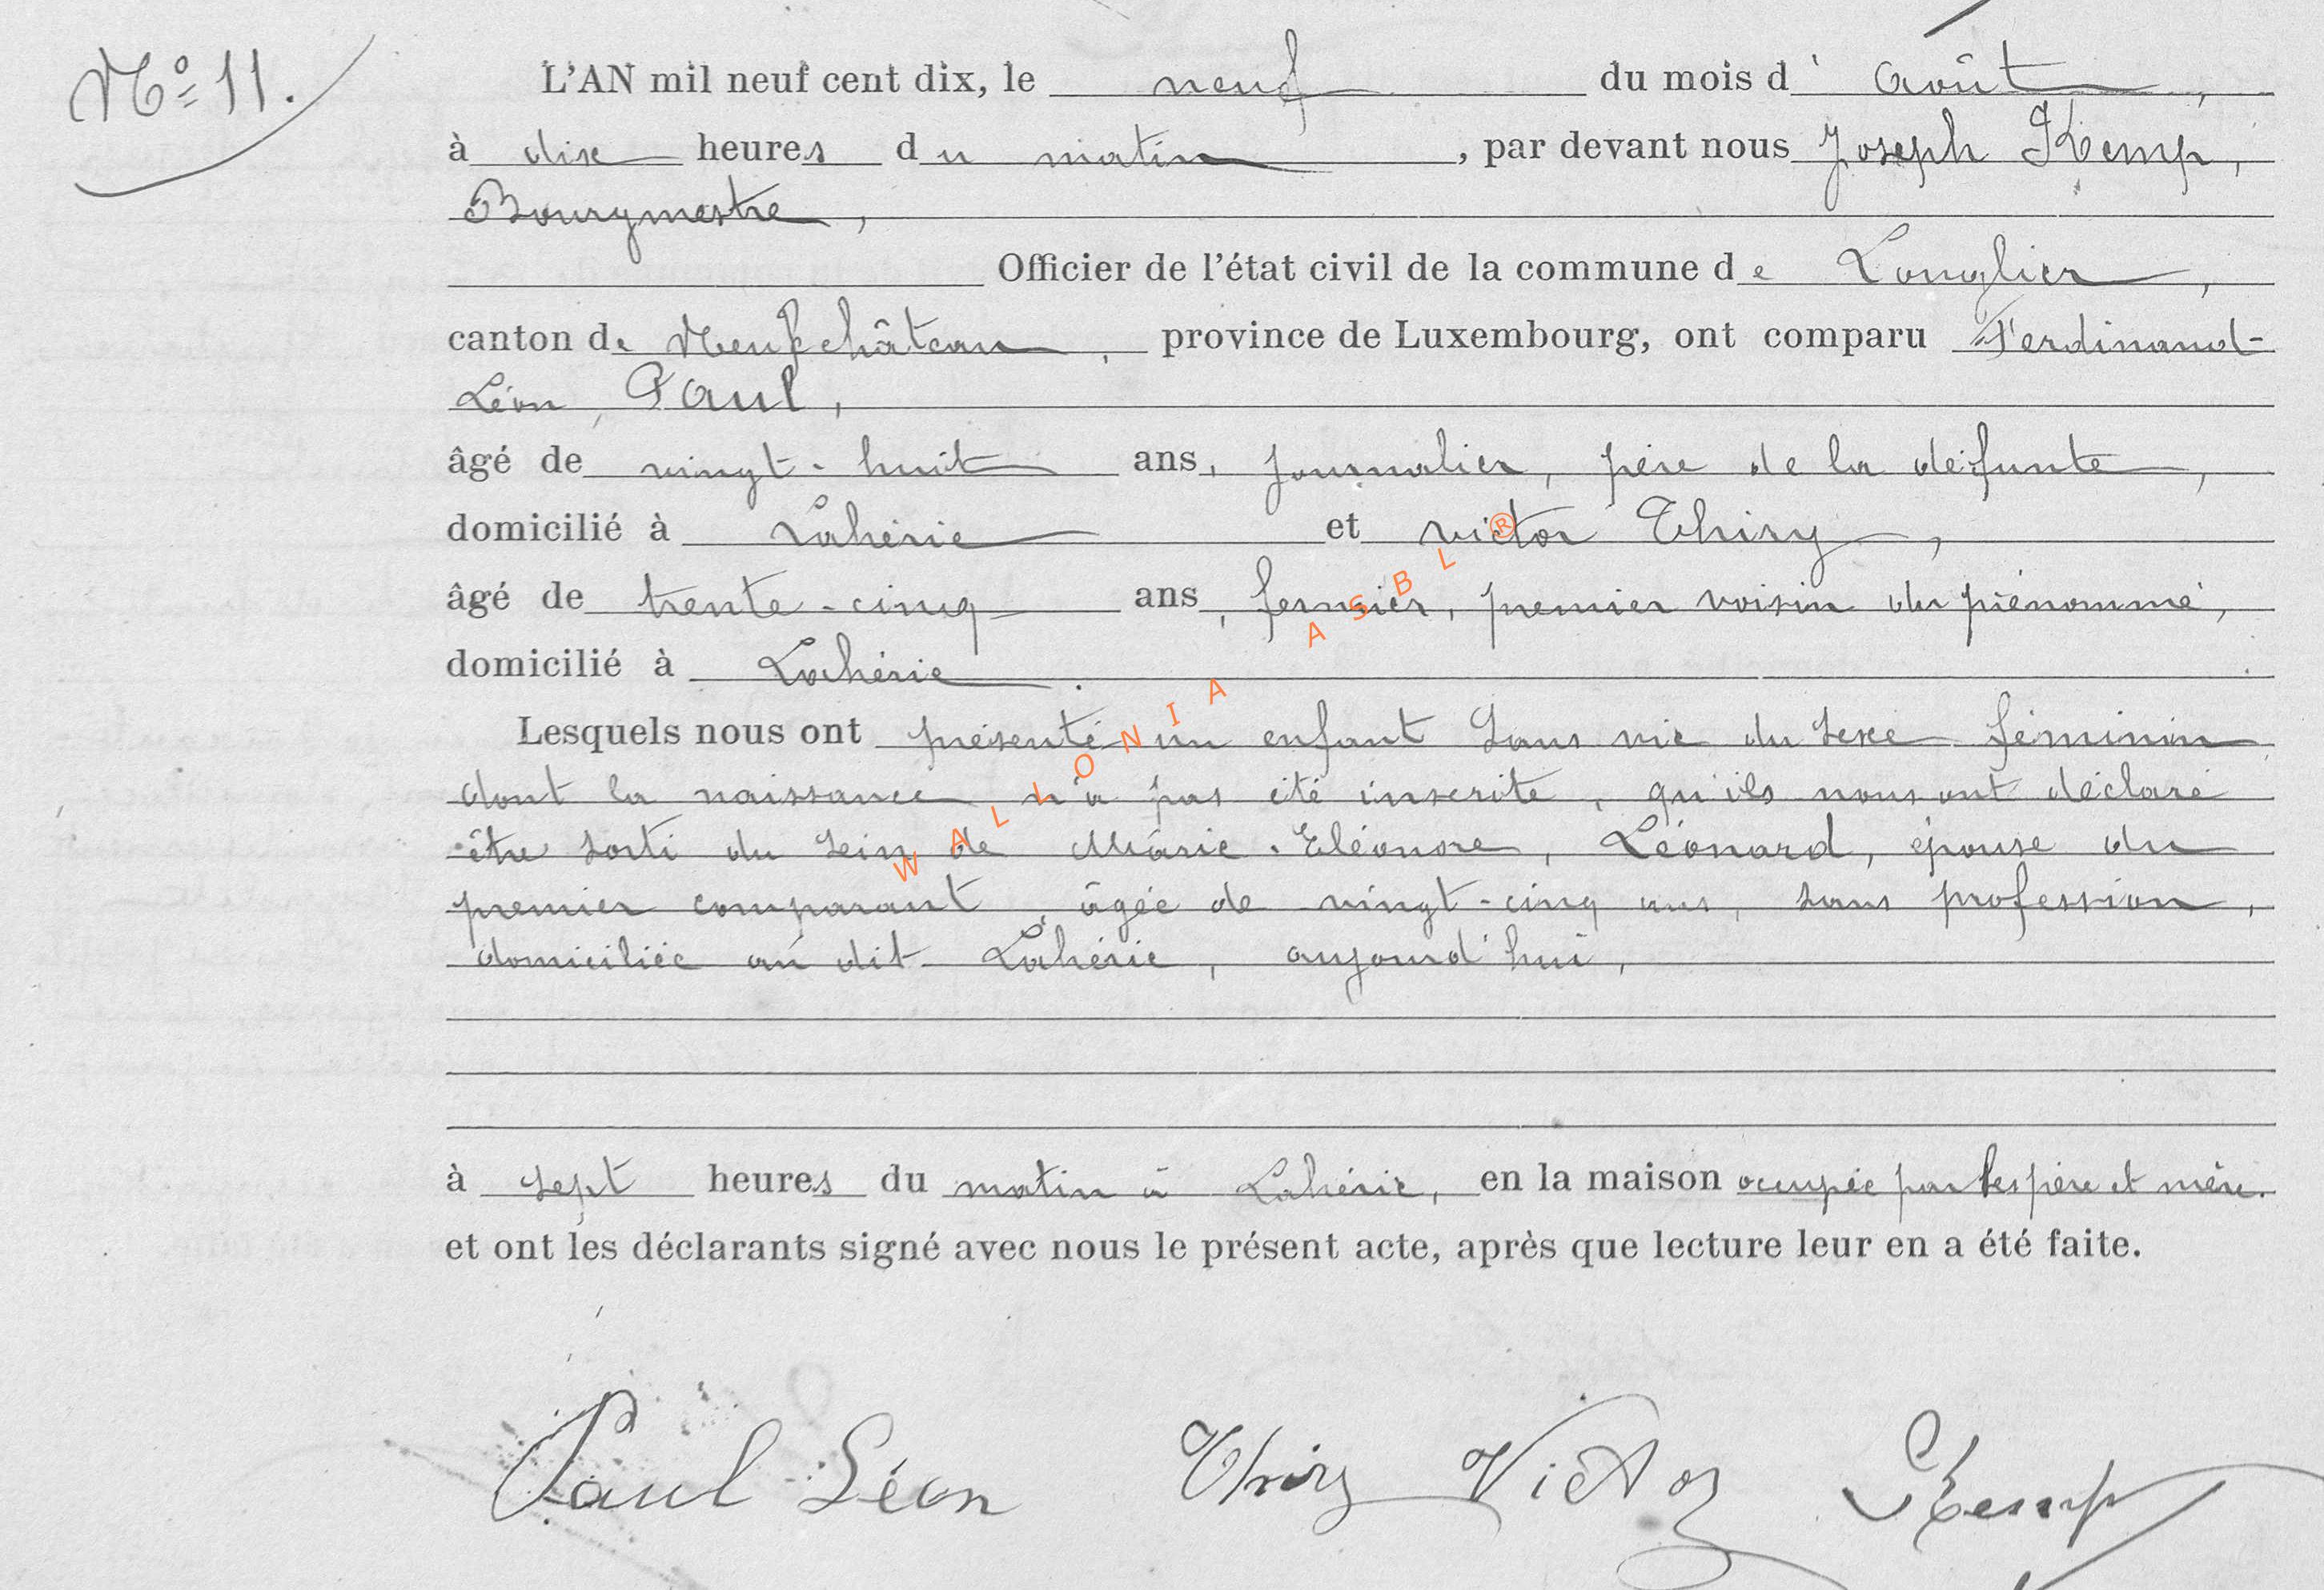 N° 11.
L'AN mil neuf cent dix, le neuf du mois d' Août,
à dix heures du matin, par devant nous Joseph Kemp,
Bourgmestre,
Officier de l'état civil de la commune de Longlier,
canton de Neufchâteau, province de Luxembourg, ont comparu Ferdinand-
Léon, Paul,
âgé de vingt-huit ans, journalier, père de la défunte,
domicilié à Lahérie et Victor Thiry,
âgé de trente-cinq ans, fermier, premier voisin du prénommé,
domicilié à Lahérie.
Lesquels nous ont présenté un enfant sans vie du sexe féminin
dont la naissance n'a pas été inscrite, qu'ils nous ont déclaré
être sorti du sein de Marie-Eléonore, Léonard, épouse du
premier comparant, âgée de vingt-cinq ans, sans profession,
domiciliée au dit Lahérie, aujourd'hui,
à sept heures du matin à Lahérie, en la maison occupée par les père et mère.
et ont les déclarants signé avec nous le présent acte, après que lecture leur en a été faite.
Paul Léon Thiry Victor Kemp
WALLONIA ASBL ®